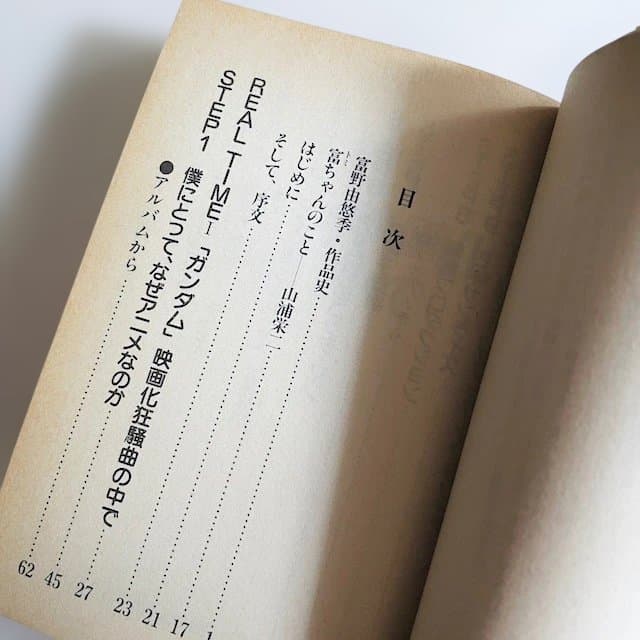 目次
富野由悠季・作品史
富ちゃんのこと——山浦栄二……17
はじめに……21
そして、序文……23
REAL TIME—「ガンダム」映画化狂騒曲の中で……27
STEP1 僕にとって、なぜアニメなのか……45
●アルバムから……62